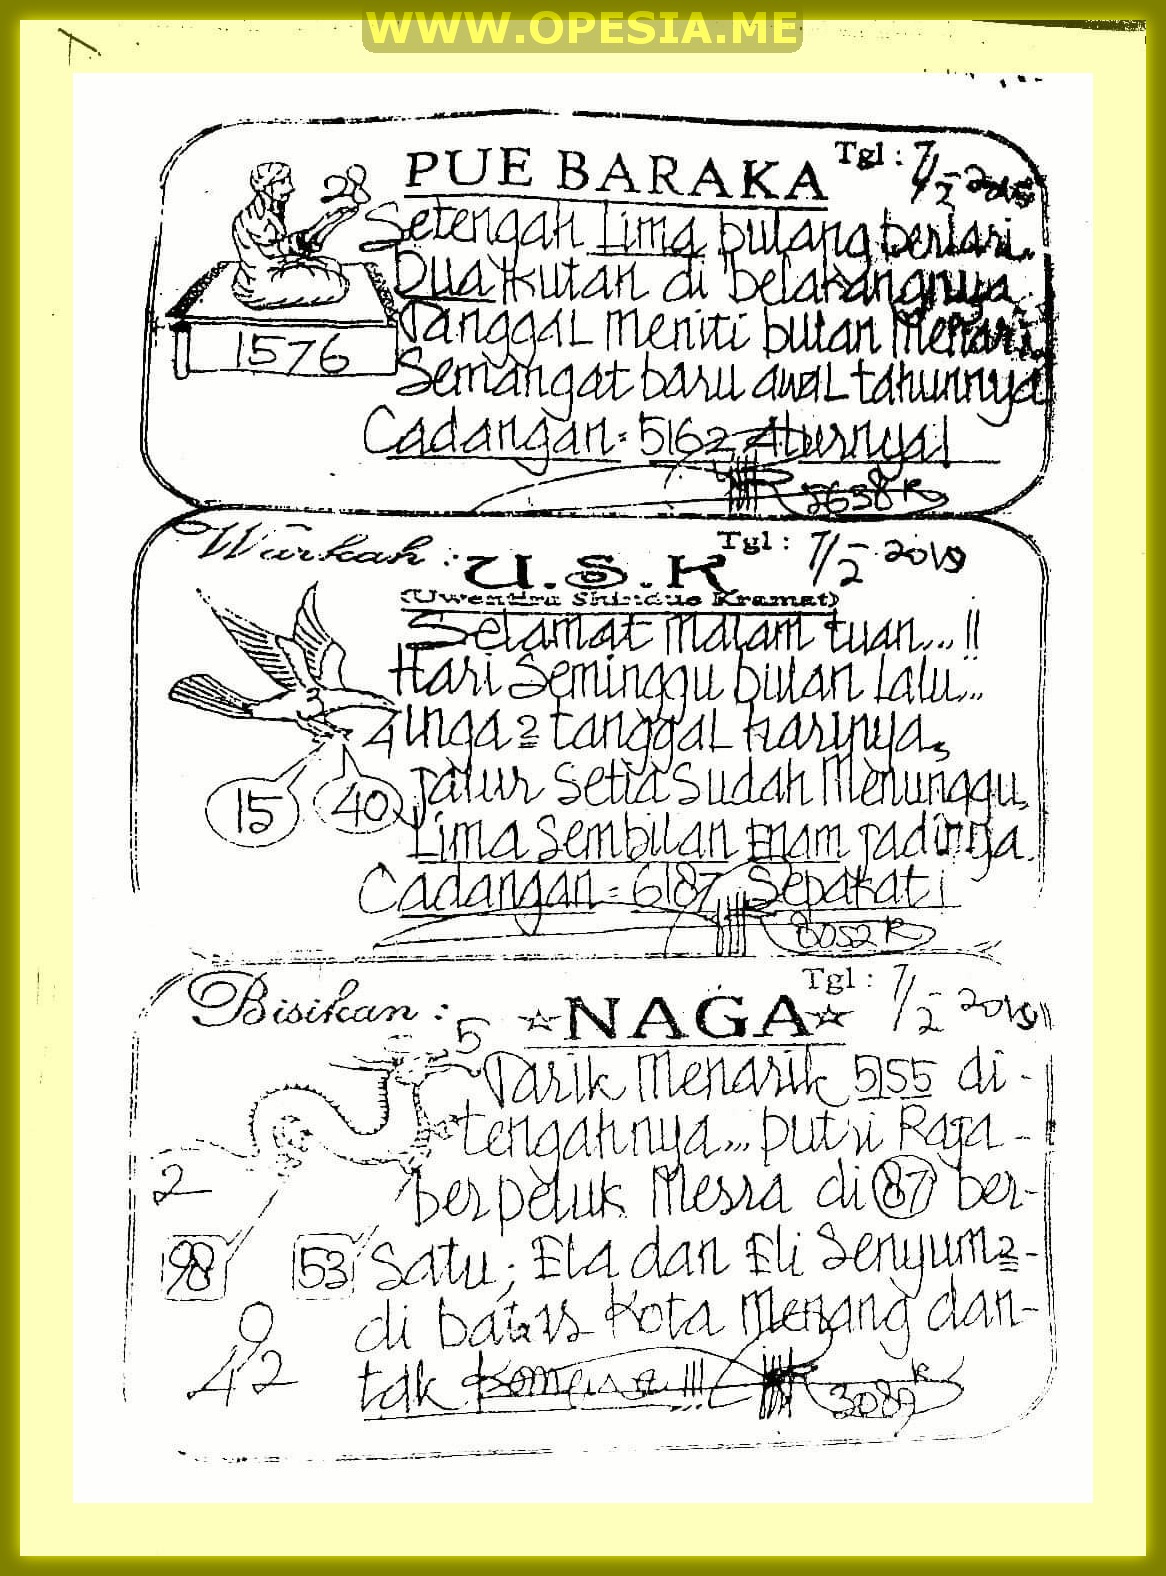 WWW.OPESIA.ME
PUE BARAKA
Tgl : 7/2-2019
28
Setengah Lima bulang berlari.
Dua ikutan di belakangnya.
Tanggal meniti bulan Menari,
1576
Semangat baru awal tahunnya
Cadangan = 5162 Aturnya!
5638 K
Wūrkah :
U.S.K
Tgl : 7/2-2019
(Uwentira Shindue Kramat)
Selamat malam tuan...!!
Hari Seminggu bulan Lalu...
4
unga2 tanggal harinya,
15
40
Jalur Setia Sudah Menunggu,
Lima Sembilan Enam Jadinya.
Cadangan = 6187 Sepakati
8052 K
Bisikan :
☆NAGA☆
Tgl : 7/2-2019
5
Tarik Menarik 5155 di-
tengahnya... putri Raja-
2
berpeluk Mesra di 87 ber-
98
53
Satu; Ela dan Eli Senyum2-
di batas Kota Menang dan-
9
42
tak
3089 K